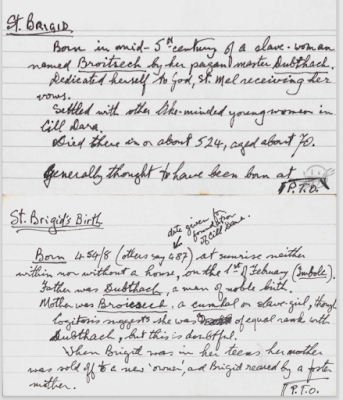 St. BRIGID
Born in mid-5th century of a slave-woman
named Broitsech by her pagan master Dubthach.
Dedicated herself to God, St. Mel receiving her
vows.
Settled with other like-minded young women in
Cill Dara.
Died there in or about 524, aged about 70.
Generally thought to have been born at
P.T.O.
St. Brigid's Birth
date given for
foundation
of Cill Dara.
Born 454/8 (others say 487) at sunrise neither
within nor without a house, on the 1st of February (Imbolc).
Father was Dubthach, a man of noble birth.
Mother was Broicsech, a cumal or slave-girl, though
Cogitosis suggests she was of equal rank with
Dubthach, but this is doubtful.
When Brigit was in her teens her mother
was sold off to a new 'owner', and Brigid reared by a foster
mother.
P.T.O.